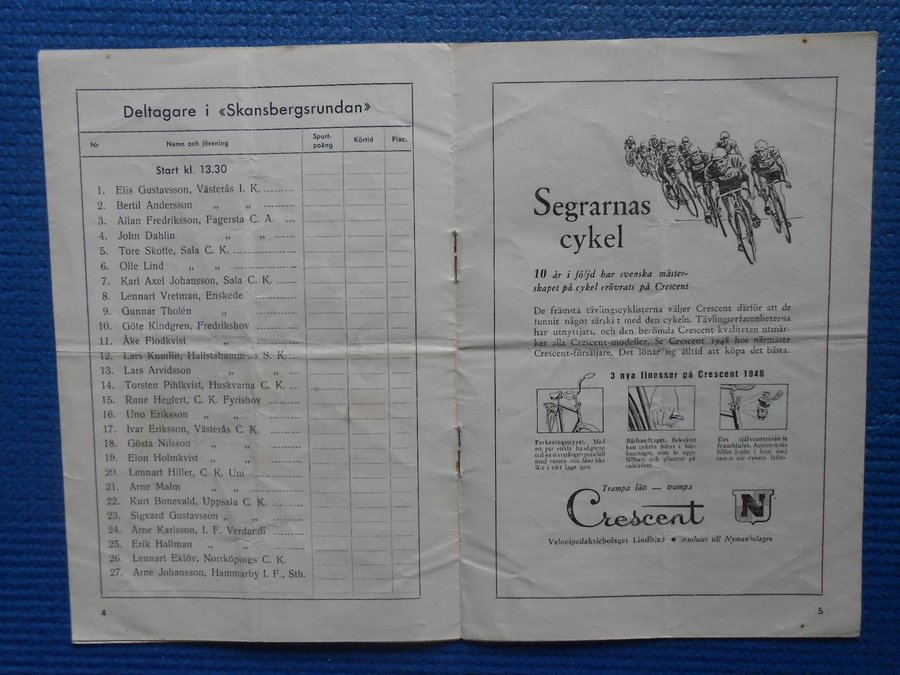 Deltagare i «Skansbergsrundan»
Nr Namn och förening Spurt-poäng Körtid Plac.
Start kl. 13.30
1. Elis Gustavsson, Västerås I. K.
2. Bertil Andersson „ „
3. Allan Fredriksson, Fagersta C. A.
4. John Dahlin „ „
5. Tore Skotte, Sala C. K.
6. Olle Lind „ „
7. Karl Axel Johansson, Sala C. K.
8. Lennart Vretman, Enskede
9. Gunnar Tholén „
10. Göte Kindgren, Fredrikshov
11. Åke Flodkvist „
12. Lars Kumlin, Hallstahammars S. K.
13. Lars Arvidsson „ „
14. Torsten Pihlkvist, Huskvarna C. K.
15. Rune Heglert, C. K. Fyrishov
16. Uno Eriksson „ „
17. Ivar Eriksson, Västerås C. K.
18. Gösta Nilsson „ „
19. Elon Holmkvist „ „
20. Lennart Hiller, C. K. Uni
21. Arne Malm „ „
22. Kurt Bonevald, Uppsala C. K.
23. Sigvard Gustavsson „ „
24. Arne Karlsson, I. F. Verdandi
25. Erik Hallman „ „
26. Lennart Eklöv, Norrköpings C. K.
27. Arne Johansson, Hammarby I. F., Sth.
4
Segrarnas
cykel
10 år i följd har svenska mäster-
skapet på cykel erövrats på Crescent
De främsta tävlingscyklisterna väljer Crescent därför att de
funnit något särskilt med den cykeln. Tävlingserfarenheterna
har utnyttjats, och den berömda Crescent-kvaliteten utmär-
ker alla Crescent-modeller. Se Crescent 1948 hos närmaste
Crescent-försäljare. Det lönar sig alltid att köpa det bästa.
3 nya finesser på Crescent 1948
Parkeringsstyret. Med
ett par enkla handgrepp
ställes styrstången parallell
med ramen och låses lika
lätt i rätt läge igen
Bärhandtaget. Bekvämt
kan cykeln bäras i bär-
handtaget, som är upp-
fällbart och placerat på
sadelröret.
Det självcentrerande
framhjulet. Automatiskt
hålles hjulet i linje med
ramen när cykeln lyftes
Trampa lätt — trampa
Crescent
N
Velocipedaktiebolaget Lindblad • anslutet till Nymanbolagen
5